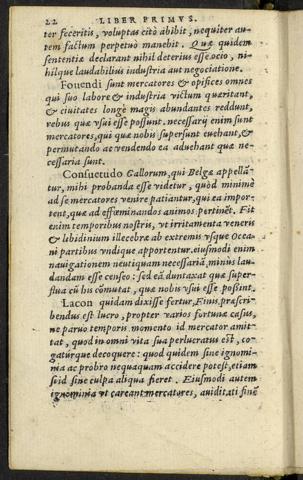 22 LIBER PRIMVS.
ter feceritis, voluptas citò abibit, nequiter au-
tem factum perpetuò manebit. Quæ quidem
sententiæ declarant nihil deterius esse ocio, ni-
hilque laudabilius industria aut negociatione.
Fouendi sunt mercatores & opifices omnes
qui suo labore & industria victum quæritant,
& ciuitates longè magis abundantes reddunt,
rebus quæ vsui esse possunt. necessarij enim sunt
mercatores, qui quæ nobis supersunt euehant, &
permutando ac vendendo ea aduehant quæ ne-
cessaria sunt.
Consuetudo Gallorum, qui Belgæ appellã-
tur, mihi probanda esse videtur, quòd minimè
ad se mercatores venire patiantur, qui ea impor-
tent, quæ ad effœminandos animos pertinẽt. Fit
enim temporibus nostris, vt irritamenta veneris
& libidinium illecebræ ab extremis vsque Ocea-
ni partibus vndique apportentur. eiusmodi enim
nauigationem neutiquam necessariã, minùs lau-
dandam esse censeo: sed eã duntaxat quæ super-
flua cũ his cõmutat, quæ nobis vsui esse possint.
Lacon quidam dixisse fertur, Eius præscri-
bendus est lucro, propter varios fortunæ casus,
ne paruo temporis momento id mercator amit-
tat, quod in omni vita sua perlucratus est, co-
gatúrque decoquere: quod quidem sine ignomi-
nia ac probro nequaquam accidere potest, etiam
si id sine culpa aliqua fieret. Eiusmodi autem
ignominia vt careant mercatores, auiditati sinẽ